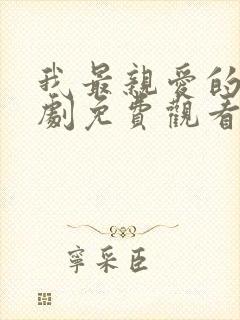 我最親愛的
劇免費觀看
寧采臣